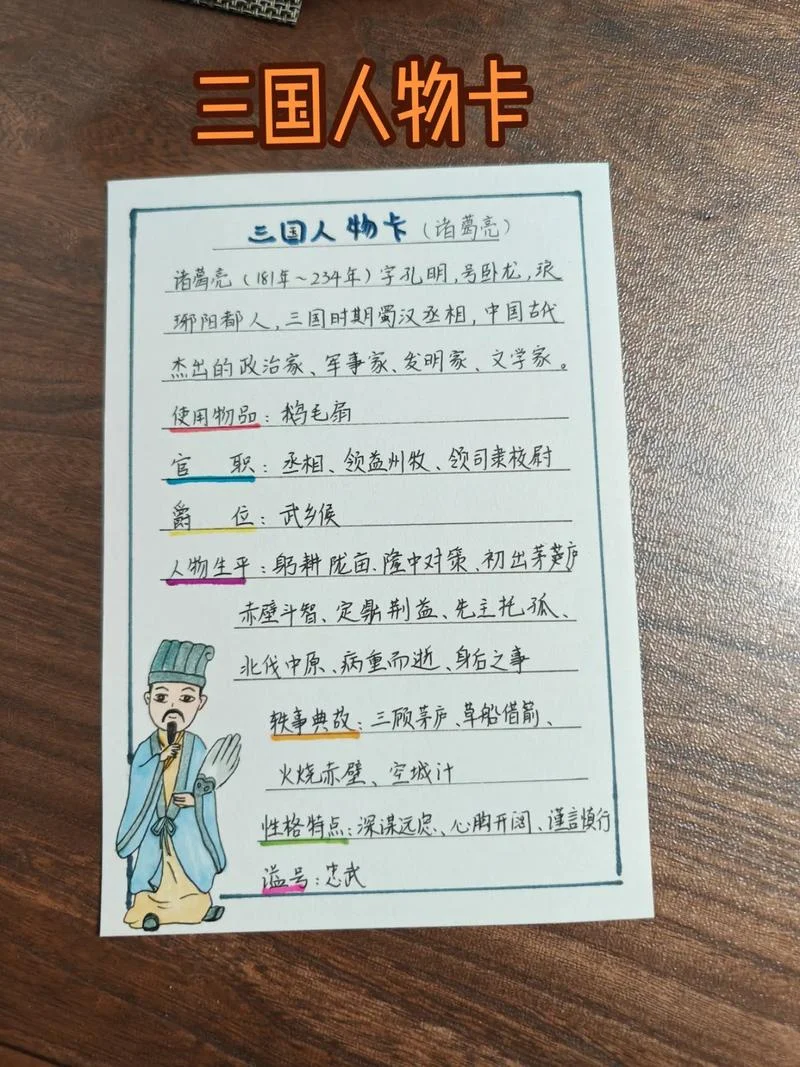 三国人物卡
三国人物卡（诸葛亮）
诸葛亮（181年～234年）字孔明，号卧龙，琅
琊阳都人，三国时期蜀汉丞相，中国古代
杰出的政治家、军事家、发明家、文学家。
使用物品：鹅毛扇
官 职：丞相、领益州牧、领司隶校尉
爵 位：武乡侯
人物生平：躬耕陇亩、隆中对策、初出茅庐
赤壁斗智、定鼎荆益、先主托孤、
北伐中原、病重而逝、身后之事
轶事典故：三顾茅庐、草船借箭、
火烧赤壁、空城计
性格特点：深谋远虑、心胸开阔、谨言慎行
谥号：忠武